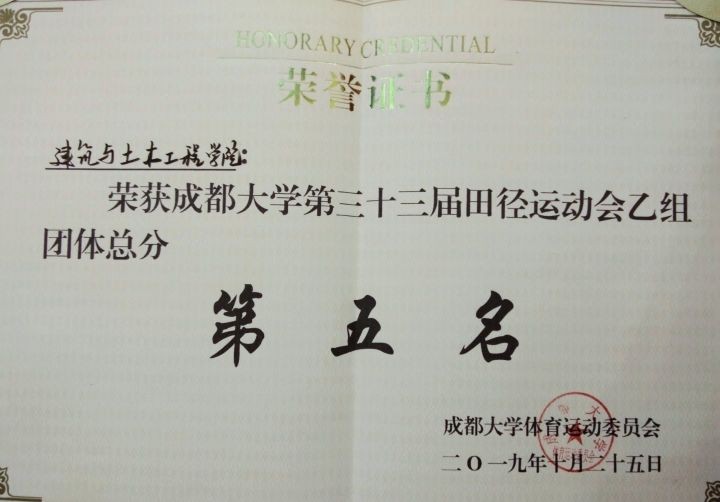 HONORARY CREDENTIAL
荣誉证书
建筑与土木工程学院:
荣获成都大学第三十三届田径运动会乙组
团体总分
第五名
成都大学体育运动委员会
二O一九年十月二十五日